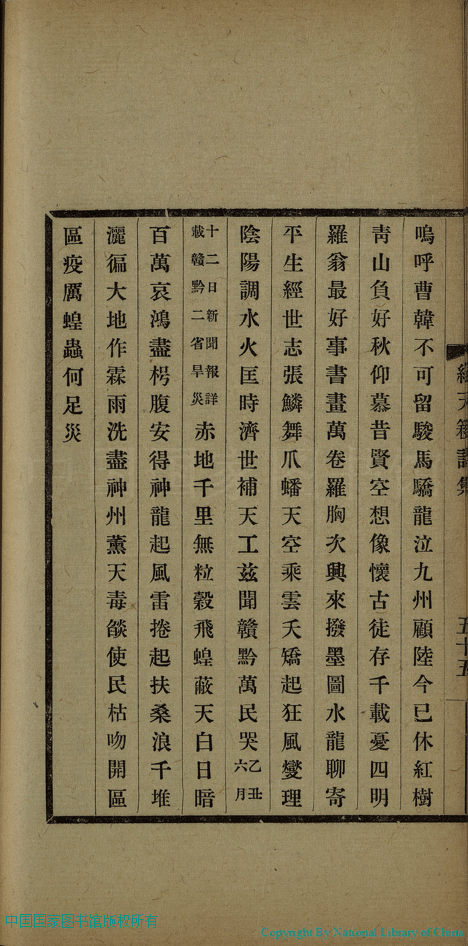 嗚呼曹韓不可留駿馬驕龍泣九州顧陸今已休紅樹
靑山負好秋仰慕昔賢空想像懷古徒存千載憂四明
羅翁最好事書畫萬卷羅胸次興來撥墨圖水龍聊寄
平生經世志張鱗舞爪蟠天空乘雲夭矯起狂風燮理
陰陽調水火匡時濟世補天工茲聞贛黔萬民哭乙丑六月
十二日新聞報詳載贛黔二省旱災赤地千里無粒穀飛蝗蔽天白日暗
百萬哀鴻盡枵腹安得神龍起風雷捲起扶桑浪千堆
灑徧大地作霖雨洗盡神州薰天毒燄使民枯吻開區
區疫厲蝗蟲何足災
五十五
中国国家图书馆版权所有
Copyright By National Library of China